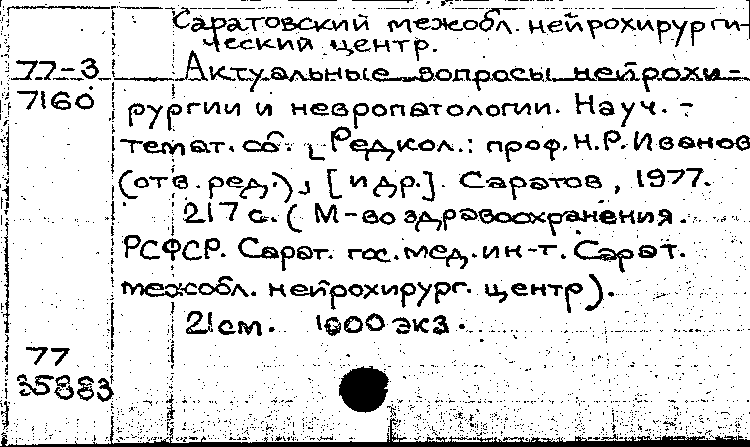 Саратовский межобл. нейрохирурги-
ческий центр.
77-3 Актуальные вопросы нейрохи-
7160 рургии и невропатологии. Науч. -
темат. сб. [Редкол.: проф. Н.Р. Иванов
(отв. ред.), [и др.]. Саратов, 1977.
217 с. (М-во здравоохранения.
РСФСР. Сарат. гос. мед. ин-т. Сарат.
межобл. нейрохирург. центр).
21 см. 1000 экз.
77
35883